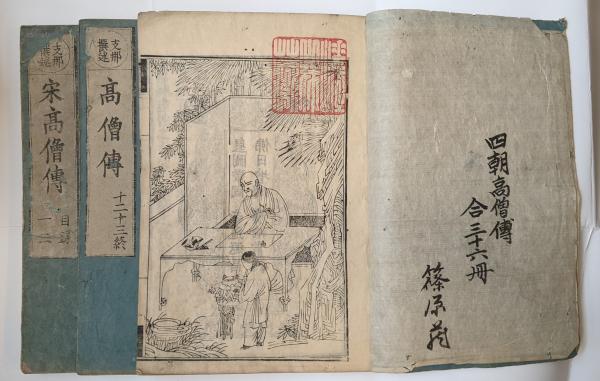 支那
撰述
宋高僧傳
目録
一二
支那
撰述
高僧傳
十二十三終
四朝高僧傳
合三十六冊
篠原蔵